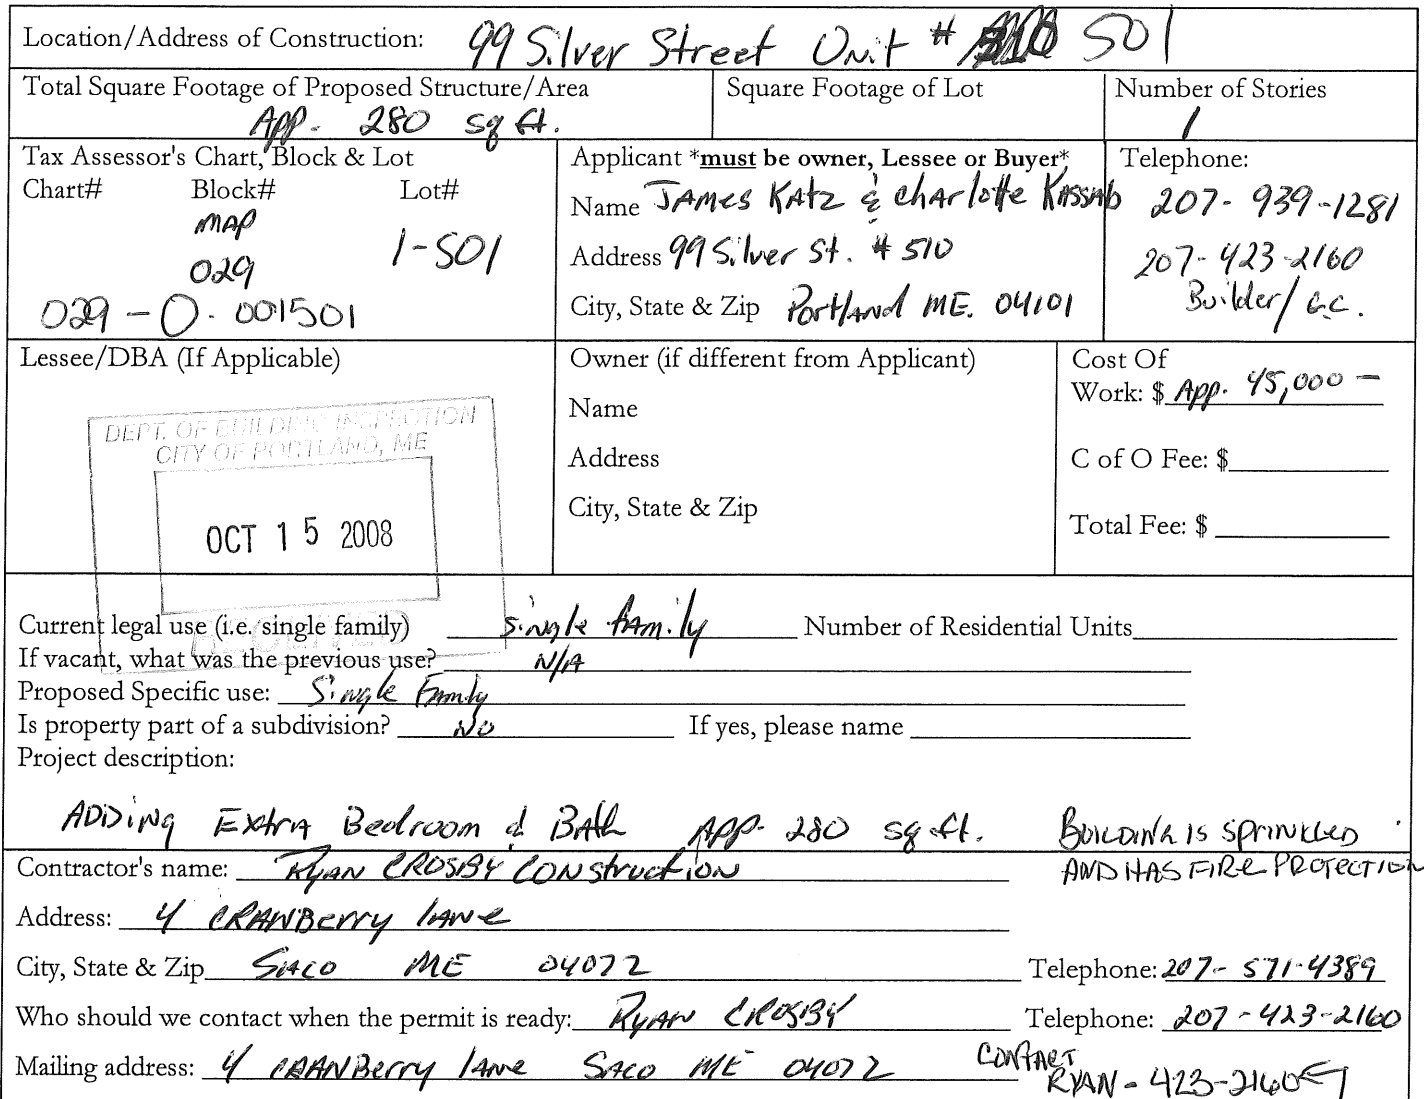 Location/Address of Construction: 99 Silver Street Unit # 501
Total Square Footage of Proposed Structure/Area
App. 280 sq ft.
Square Footage of Lot
Number of Stories
1
Tax Assessor's Chart, Block & Lot
Chart# Block# Lot#
MAP
029
1-501
029 - O. 001501
Applicant *must be owner, Lessee or Buyer*
Name JAMES KATZ & CHARlotte KASSAb
Address 99 Silver St. # 510
City, State & Zip Portland ME. 04101
Telephone:
207- 939-1281
207-423-2160
Builder/G.C.
Lessee/DBA (If Applicable)
DEPT. OF BUILDING INSPECTION
CITY OF PORTLAND, ME
OCT 15 2008
RECEIVED
Owner (if different from Applicant)
Name
Address
City, State & Zip
Cost Of
Work: $ App. 45,000 -
C of O Fee: $
Total Fee: $
Current legal use (i.e. single family) Single family Number of Residential Units
If vacant, what was the previous use? N/A
Proposed Specific use: Single Family
Is property part of a subdivision? No If yes, please name
Project description:
ADDing Extra Bedroom & BAth APP. 280 sq.ft. BUILDING IS SPRINKLED
AND HAS FIRE PROTECTION
Contractor's name: RYAN CROSBY CONstruction
Address: 4 CRANBerry lANe
City, State & Zip SACO ME 04072 Telephone: 207- 571-4389
Who should we contact when the permit is ready: RYAN CROSBY Telephone: 207-423-2160
Mailing address: 4 CRANBerry lANe SACO ME 04072
CONTACT
RYAN - 423-2160